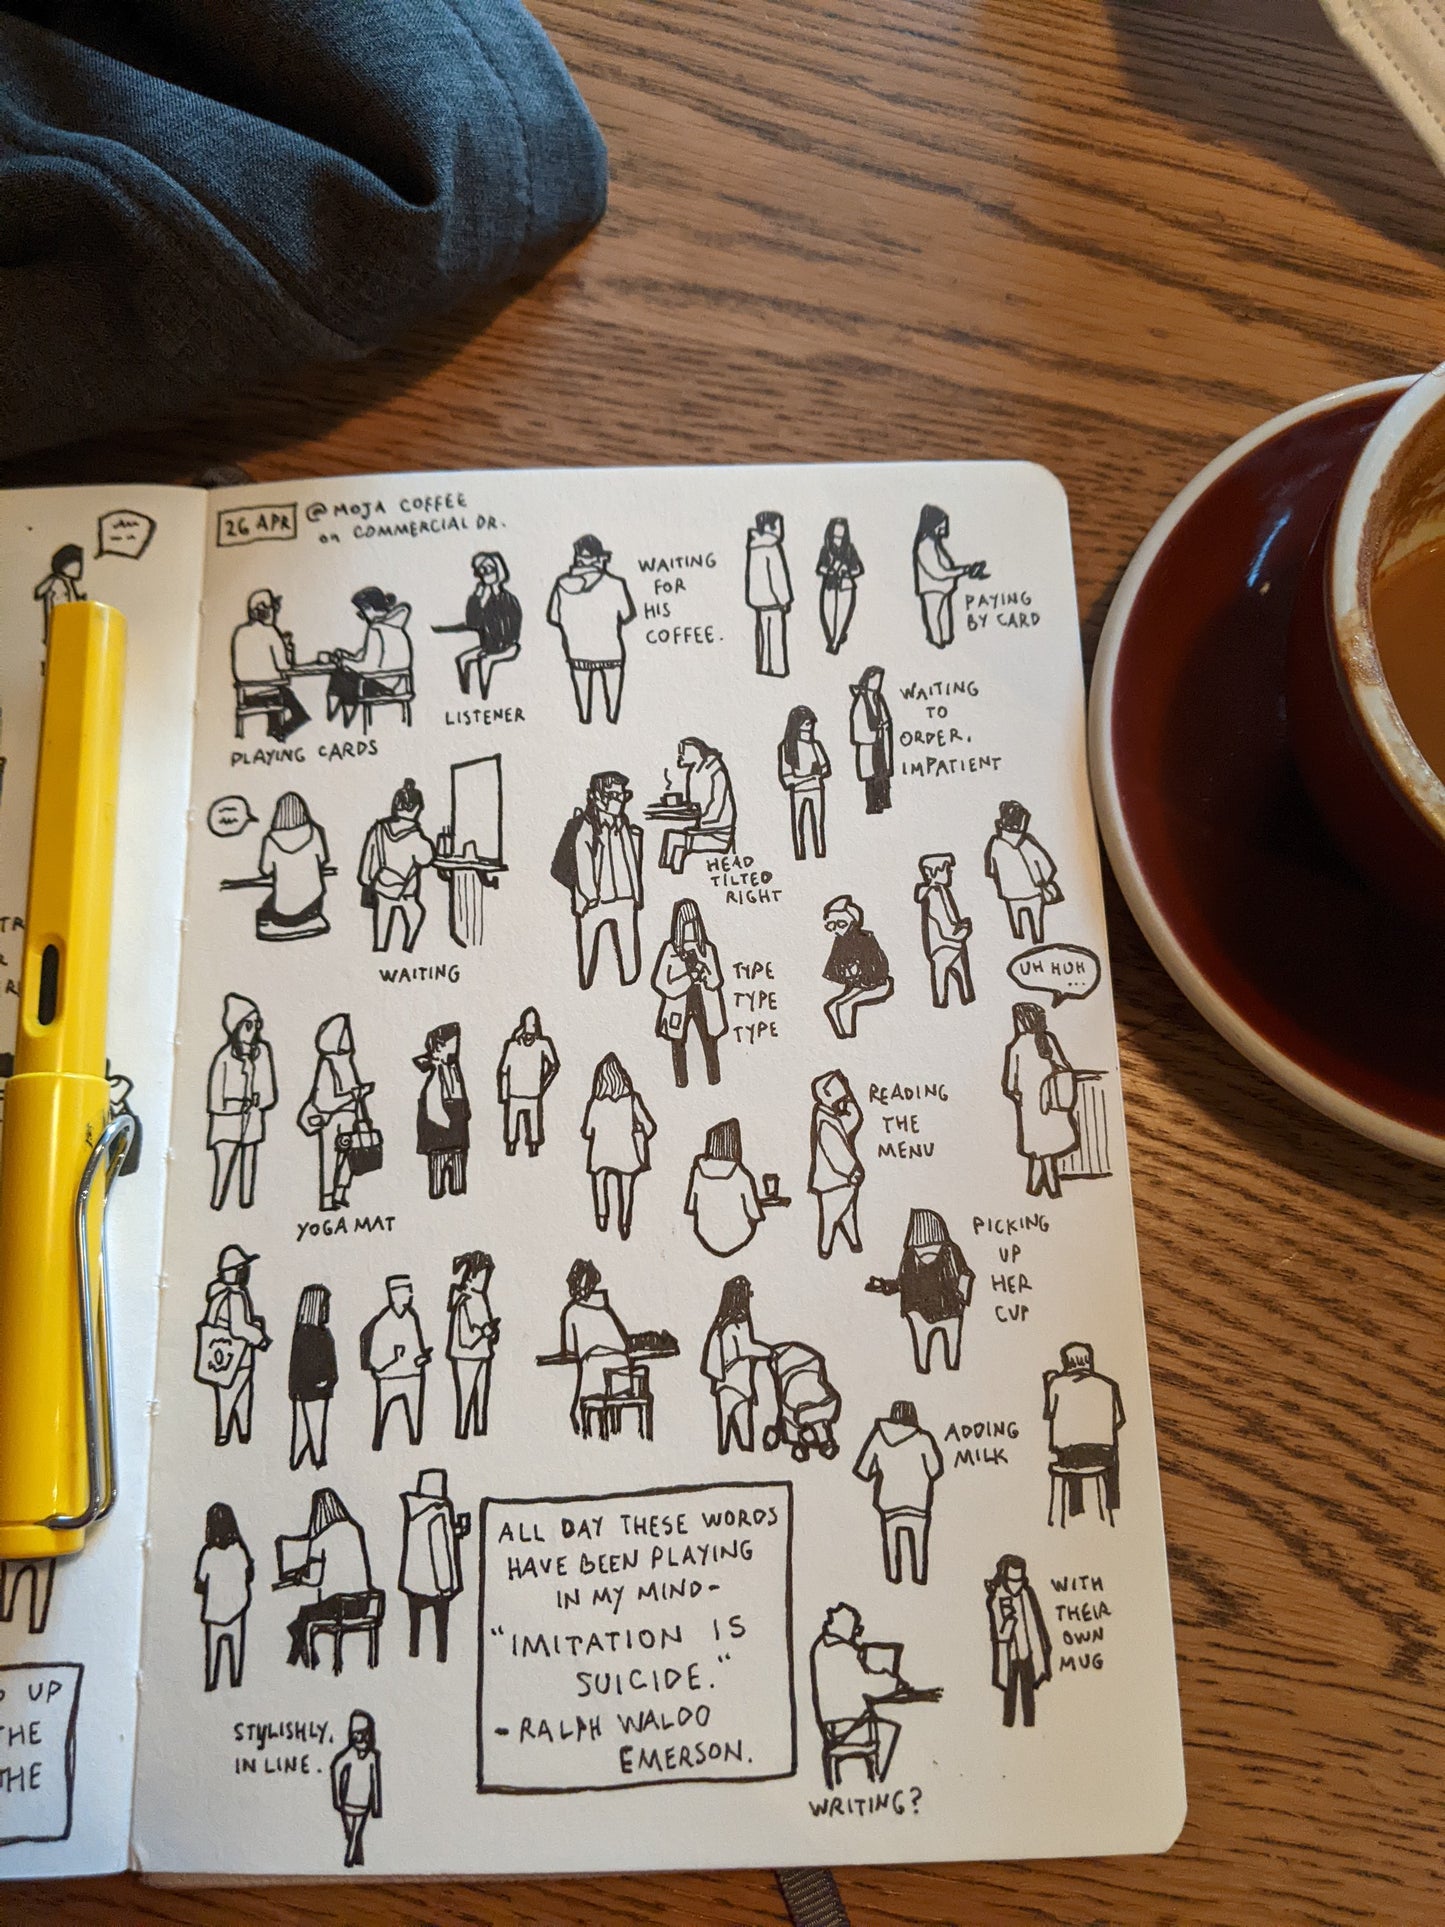 26 APR
@ MOJA COFFEE
on COMMERCIAL DR.
PLAYING CARDS
LISTENER
WAITING
FOR
HIS
COFFEE.
PAYING
BY CARD
WAITING
TO
ORDER.
IMPATIENT
WAITING
HEAD
TILTED
RIGHT
TYPE
TYPE
TYPE
UH HUH
...
YOGA MAT
READING
THE
MENU
PICKING
UP
HER
CUP
ADDING
MILK
ALL DAY THESE WORDS
HAVE BEEN PLAYING
IN MY MIND-
"IMITATION IS
SUICIDE."
- RALPH WALDO
EMERSON.
WITH
THEIR
OWN
MUG
STYLISHLY.
IN LINE.
WRITING?
UP
THE
THE